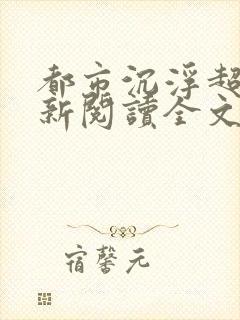 都市沉浮超
新閱讀全文
宿馨元